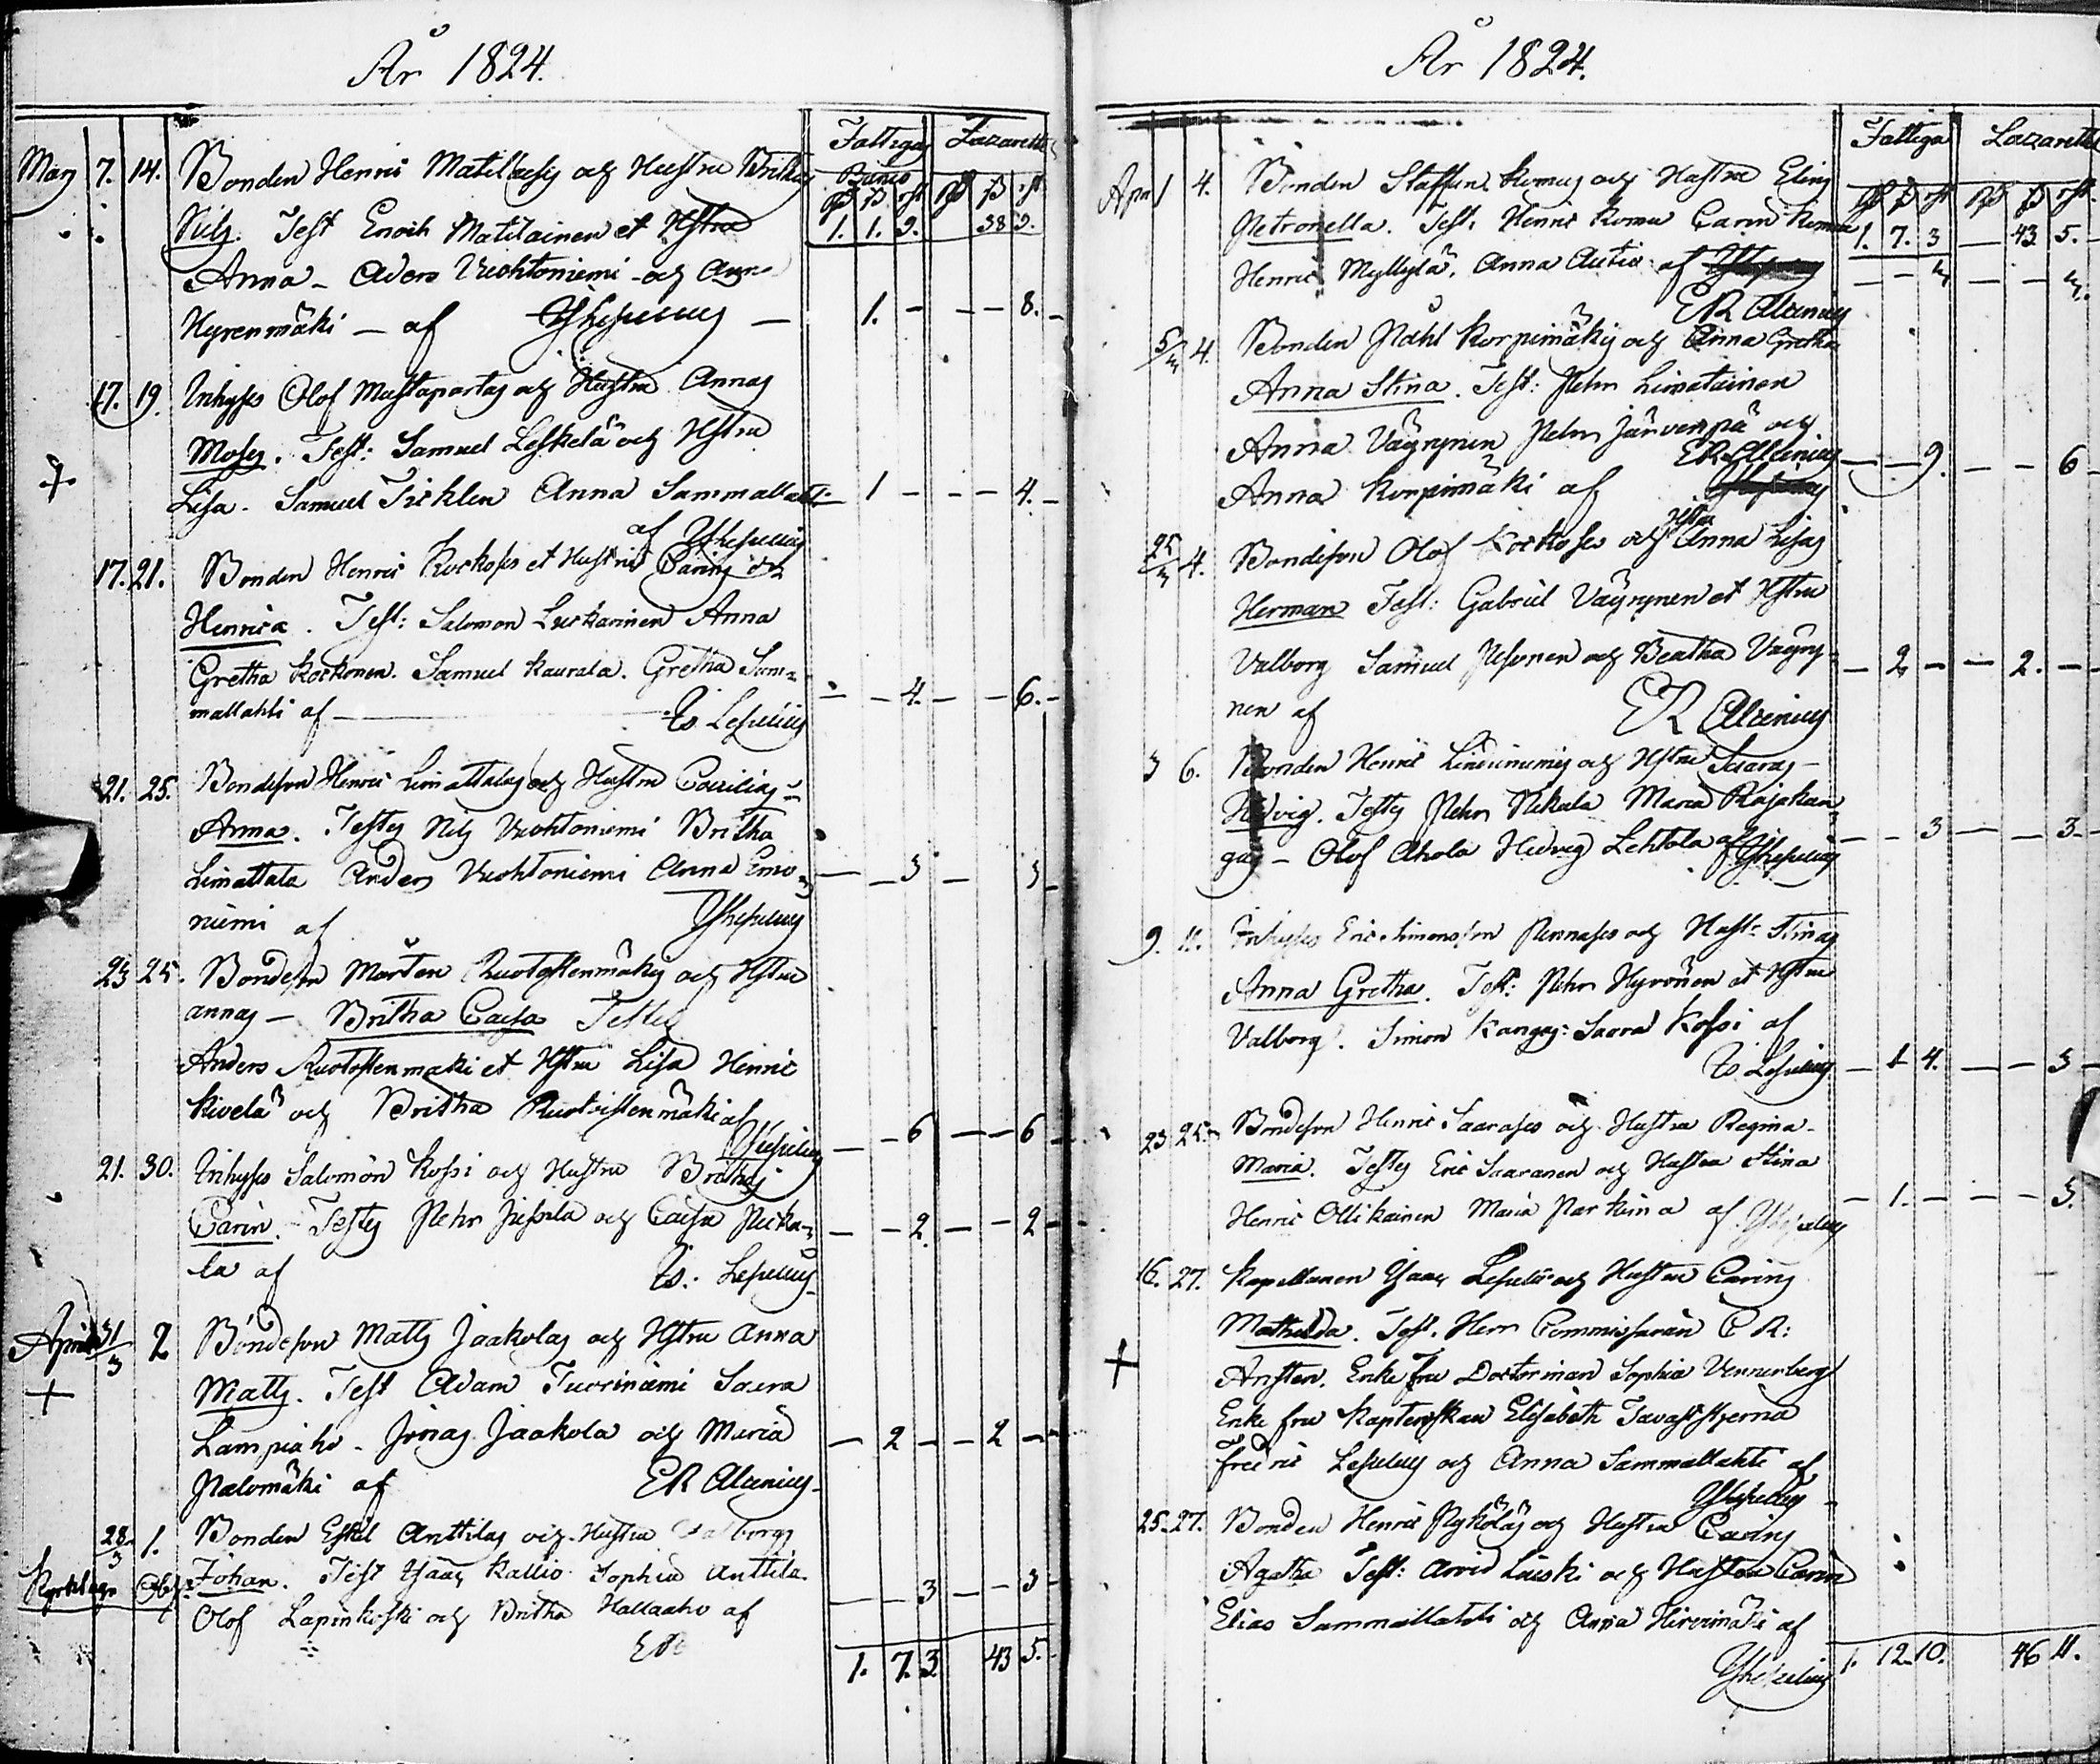 År 1824.
Fattiga Lazarettet
Banco
Mars 7. 14. Bonden Henric Matilaises och Hustru Brithas
1. 1. 9. 38 9.
Nils. Test Enoch Matilainen et Hstru
Anna - Aders Vuohtoniemi och Anna
Hyrenmäki - af IsLefrenius 1. - - - 8. -
17. 19. Inhyses Olof Mustapartas och Hustru Annas
Moses. Test: Samuel Leskelä och Hstru
Lisa. Samuel Ticklen Anna Sammallahti 1 - - - 4. -
af
17. 21. Bonden Henric Korkoses et Hustrus Carins
Henrica. Test: Salomon Luckarinen Anna
Gretha Korkonen. Samuel Kaurala. Gretha Sam-
mallahti af - - 4. - - 6. -
21. 25. Bondeson Henric Limattalas och Hustru Cecilias
Anna. Testes Nils Vuohtoniemi Britha
Limattala Anders Vuohtoniemi Anna Emo- - - 3 - 3 -
niemi af
23 25. Bondeson Mårten Ruotostenmäkis och Hstru
annas - Britha Caisa Testes
Anders Ruotostenmäki et Hstru Lisa Henric
Kivelä och Britha Ruotoistenmäki af
- - 6 - - 6 -
21. 30. Inhyses Salomon Kossi och Hustru Brithas
Carin. Testes Pehr Jussila och Caisa Picka- - - 2. - - 2 -
la af
April 31/3 2 Bondeson Matts Jaakolas och Hstru Anna
Matts. Test Adam Tuoriniemi Saara
+ Lampiaho. Jonas Jaakola och Maria - 2 - - 2 - -
Palomäki af ER Alcenius
28/3 1. Bonden Eskel Anttilas och Hustru Valborgs
Johan. Test Isaac Kallio Sophia Anttila - - 3 - - 3 -
Olof Lapinkoski och Britha Hallaaho af
ER
1. 7. 3. 43 5.
År 1824.
Fattiga Lazarettet
April 4. Bonden Staffan Komus och Hustru Elins
Petronella. Test. Henric Komu Carin Komu 1. 7. 3 - 43 5. -
Henric Myllylä, Anna Autio af
ER Alcenius
5/4 4. Bonden Påhl Korpimäkis och Anna Gretha
Anna Stina. Test: Pehr Limatainen
Anna Väyrynen Pehr Järvenpä och
ER Alcenius - - 9. - - 6 -
Anna Korpimäki af
25/3 4. Bondeson Olof Korkoses och Hstr Anna Lisas
Herman Test: Gabriel Väyrynen et Hstru
Valborg Samuel Pesonen och Beatha Väyry- - 2 - - 2. - -
nen af ER Alcenius
3 6. Bonden Henric och Hstru Saaras -
Hedvig. Testes Pehr Nikula Maria Rajakan-
gas - Olof Ahola Hedvig Lehtola af - - 3 - - 3. -
9. 11. Inhyses Eric Simonsson Pennases och Hust: Stinas
Anna Gretha. Test: Pehr Hyvönen et Hstru
Valborg. Simon Kangas: Saara Kossi af
- 1 4. - - 3 -
23 25. Bondeson Henric Saarases och Hustru Regina
Maria. Testes Eric Saaranen och Hustru Stina
Henric Ollikainen Maria Parkina af - 1. - - - 3.
16. 27. Kapellanen Isaac och Hustru Carins
Mathilda. Test. Herr Commissarien C R:
+ Ansten. Enke fru Doctorinnan Sophia Vennerberg
Enke fru Kaptenskan Elisabeth Tavaststjerna
Fredric och Anna Sammallahti af
25. 27. Bonden Henric Pyköläs och Hustru Carins
Agatha Test: Arvid Laiski och Hustru Carin
Elias Sammallahti och Anna Hirvimäki af
1. 12. 10. 46 11.